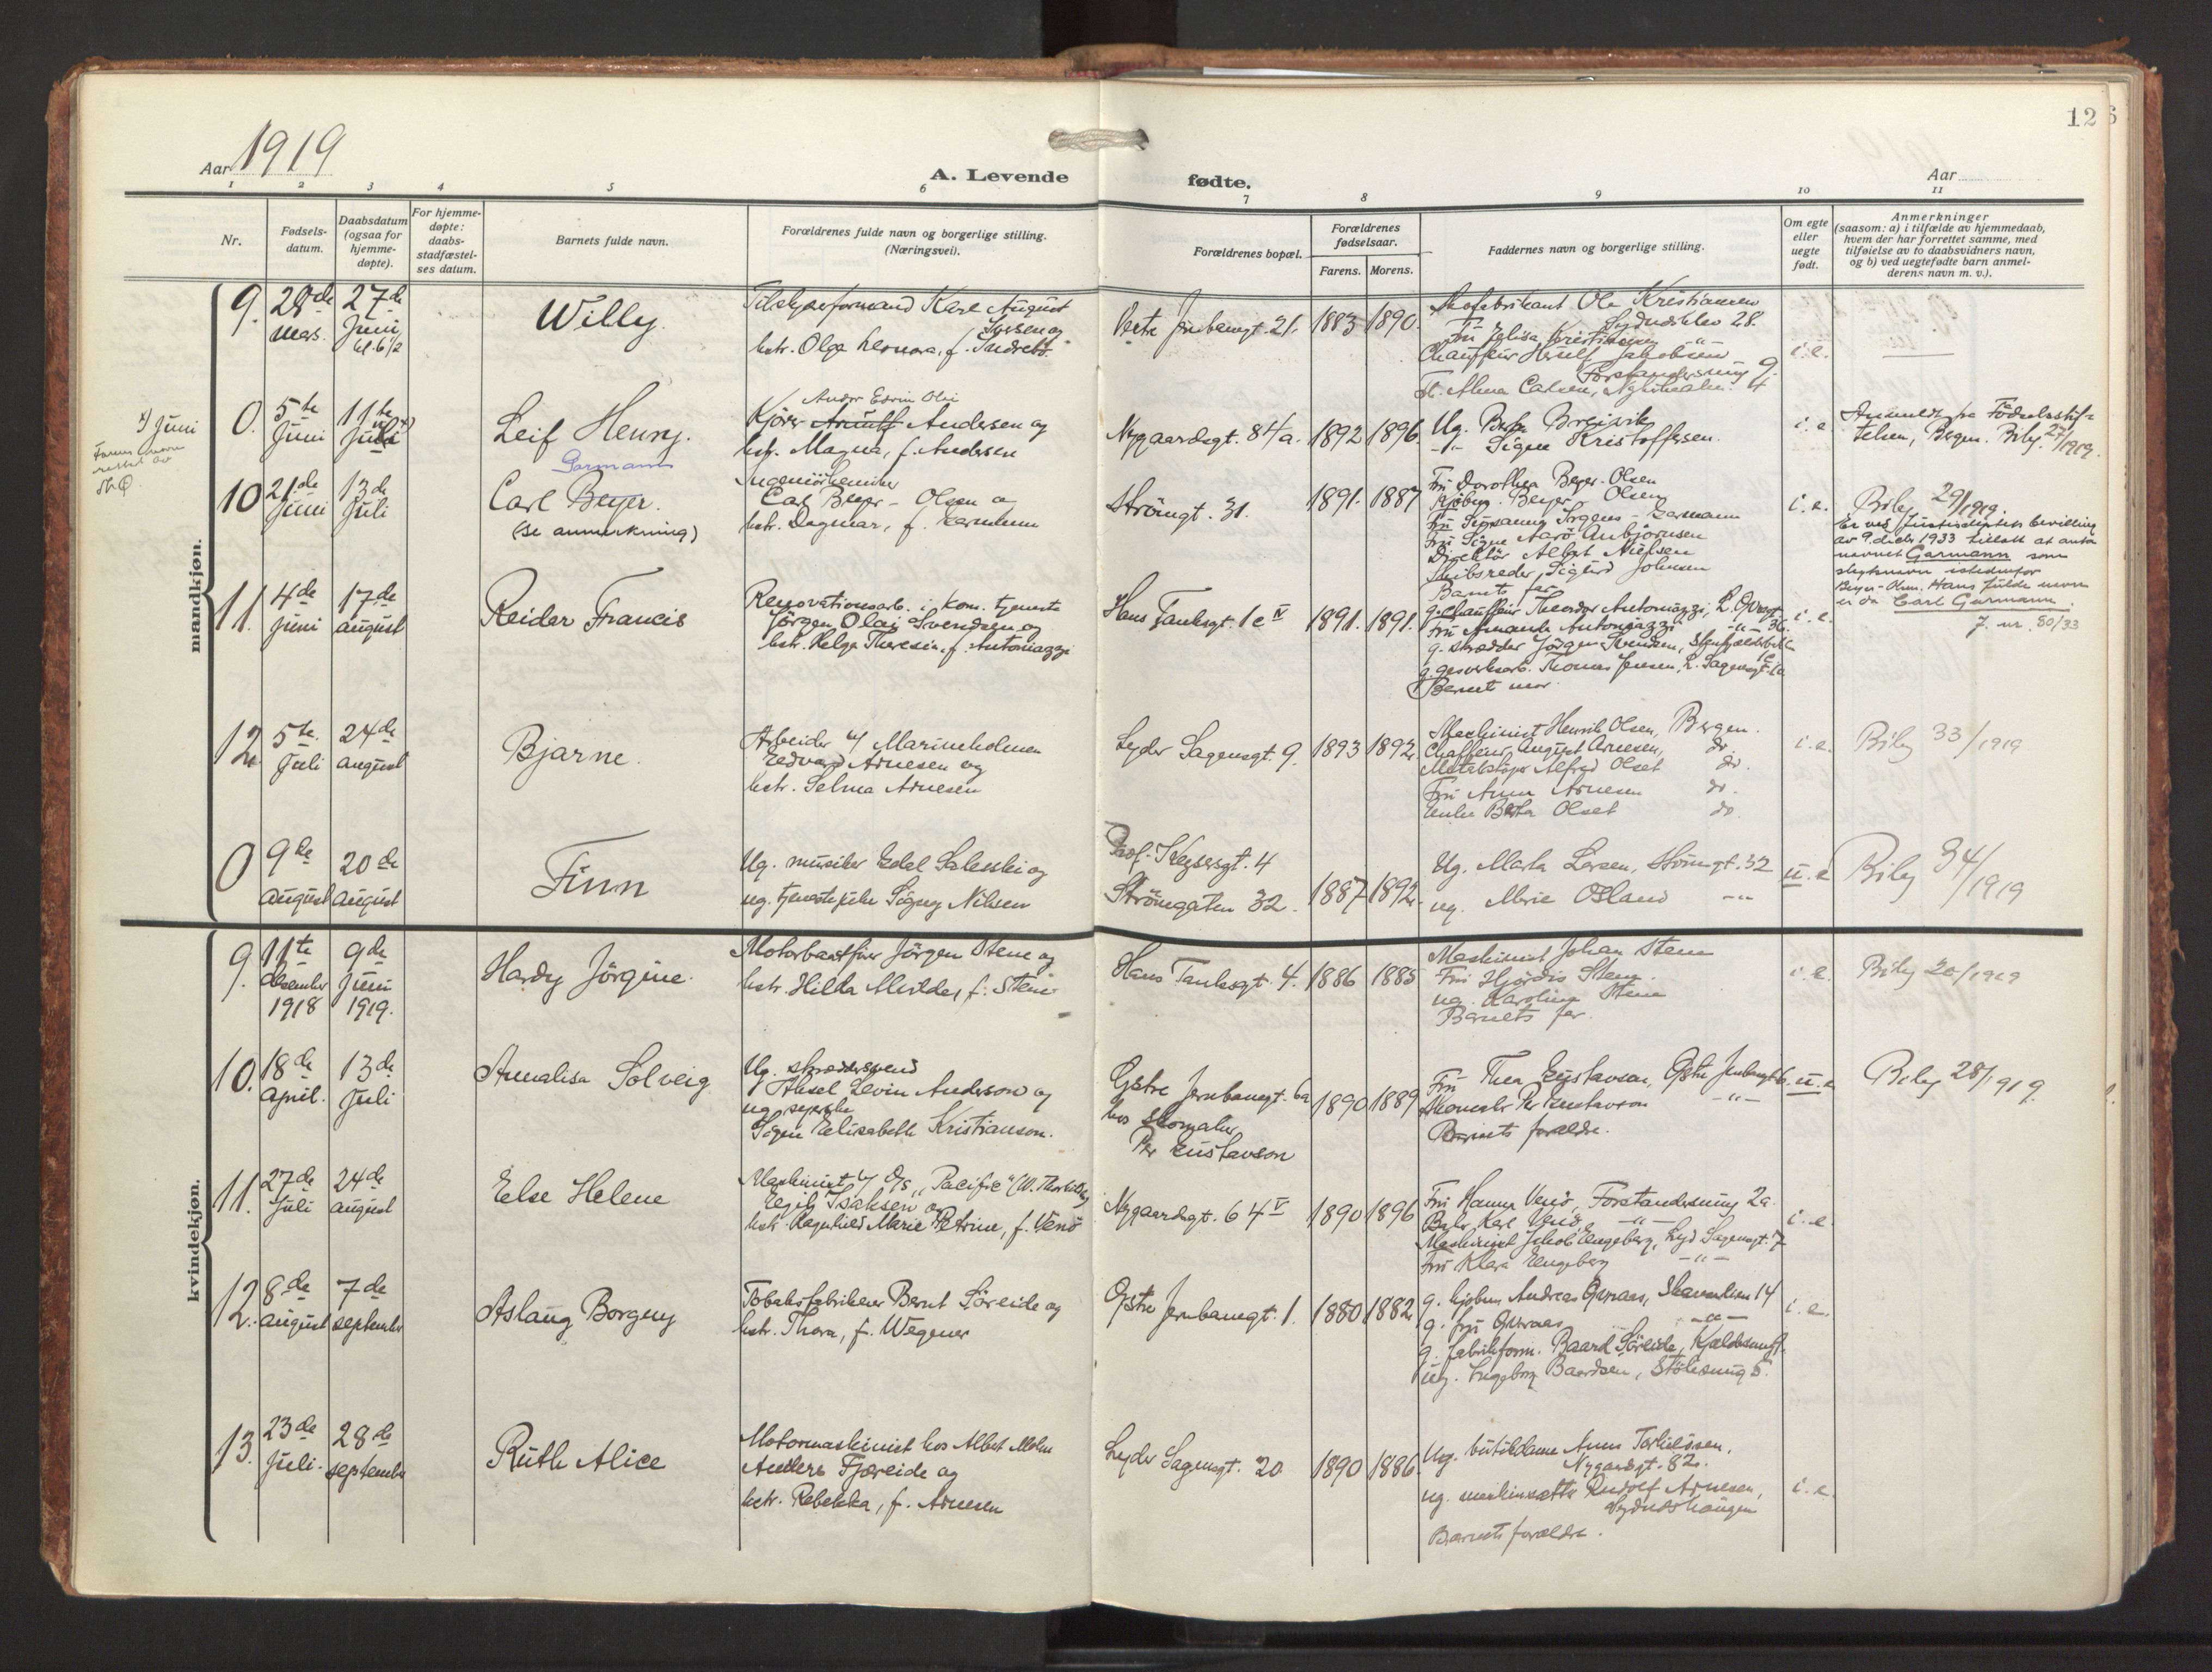 12
Aar 1919
A. Levende fødte.
Aar
1 2 3 4 5 6 7 8 9 10 11
Nr.
Fødsels-
datum.
Daabsdatum
(ogsaa for
hjemme-
døpte).
For hjemme-
døpte:
daabs-
stadfæstel-
ses datum.
Barnets fulde navn.
Forældrenes fulde navn og borgerlige stilling.
(Næringsvei).
Forældrenes bopæl.
Forældrenes
fødselsaar.
Farens. Morens.
Faddernes navn og borgerlige stilling.
Om egte
eller
uegte
født.
Anmerkninger
(saasom: a) i tilfælde av hjemmedaab,
hvem der har forrettet samme, med
tilføielse av to daabsvidners navn,
og b) ved uegtefødte barn anmel-
derens navn m. v.).
mandkjøn.
9. 28de mars. 27de Juni kl. 6 1/2
Willy.
Karl August
hstr. Olga Leonora, f. Indrebö
Vestre Jernbanegt. 21. 1883 1890.
Skofabrikant Ole Kristiansen
Sydneskleven 28.
i. e.
x) Juni
0. 5te Juni 11te Juli x)
Leif Henry.
Andor Edvin Olai
Kjører Andersen og
hstr. Magna, f. Andersen
Nygaardsgt. 84a. 1892 1896
Ug. Berta Breivik
-"- Signe Kristoffersen.
i. e
Anmeldt fra Födselsstif-
telsen, Bergen. Bileg 27/1919.
10 21de Juni 13de Juli
Garmann
Carl Beyer.
(se anmerkning)
Ingeniörkemiker
Carl Beyer-Olsen og
hstr. Dagmar, f. Garmann
Strömgt. 31. 1891. 1887
Fru Dorothea Beyer-Olsen
Kjöbm. Beyer-Olsen
Fru Signe Aarö Anbjörnsen
Direktör Albert Nielsen
Skibsreder Sigurd Johnsen
Barnets far
i. e.
Bileg 29/1919.
Er ved Justisdeptets bevilling
av 9. decbr 1933 tillatt at anta
navnet Garmann som
slegtsnavn istedenfor
Beyer-Olsen. Hans fulde navn
er da Carl Garmann.
J. nr. 80/33
11. 4de juni 17de august
Reidar Francis
Renovationsarb. i Kom. tjeneste
Jörgen Olai Svendsen og
hstr. Helga Theresia, f. Antoniazzi
Hans Tanksgt. 1c IV 1891. 1891.
g. chauffeur Theodor Antoniazzi,
Fru Amanda Antoniazzi -"- 36.
g. skrædder Jörgen Svendsen,
g. gasverksarb. Thomas Jensen, L. Sagensgt.
Barnets mor
i. e.
12 5te Juli 24de august
Bjarne.
Arbeider v/ Marineholmen
Edvard Arnesen og
hstr. Selma Arnesen
Lyder Sagensgt. 9. 1893 1892.
Maskinist Henrik Olsen, Bergen.
Chaffeur August Arnesen, do.
Metalstøper Alfred Olset do.
Fru Anna Arnesen do.
Enke Berta Olset do
i. e.
Bileg 33/1919
0 9de august 20de august
Finn
Ug. musiker Edel Salenski og
ug. tjenestepike Signy Nilsen
Prof. Keysersgt. 4
Strömgaten 32. 1887 1892.
Ug. Marta Larsen, Strömgt. 32
ug. Marie Osland -"-
u. e
Bileg 34/1919
kvindekjøn.
9. 11te desember 1918 9de juni 1919.
Hardy Jörgine.
Motorbaatfører Jörgen Stene og
hstr. Hilda Matilde, f. Stene
Hans Tanksgt. 4. 1886 1885
Maskinist Johan Stene
Fru Hjördis Stene.
ug. Karoline Stene
Barnets far.
i. e.
Bileg 20/1919
10. 18de April. 13de Juli
Annalisa Solveig
Ug. skræddersvend
Aksel Levin Anderson og
ug. syerske
Signe Elisabeth Kristianson.
Östre Jernbanegt. 6a
hos skomaker
Per Gustavson 1890 1889
Fru Thea Gustavson, Östre Jernbanegt 6.
Skomaker Per Gustavson -"-
Barnets forældre.
u. e
Bileg 28/1919.
11. 27de Juli 24de august
Else Helene
Maskinist v/ D/S "Pacific"
Egil Isaksen og
hstr. Ragnhild Marie Petrine, f. Venö
Nygaardsgt. 64 V 1890 1896
Fru Hanna Venö, Forstandersmug 2a.
Karl Venö -"-
Maskinist Jakob Engeberg, Lyd. Sagensgt. 7
Fru Klara Engeberg -"-
i. e.
12. 8de august 7de september
Aslaug Borgny
Tobaksfabrikker Bernt Söreide og
hstr. Thora, f. Wegener
Östre Jernbanegt. 1. 1880 1882.
g. kjøbm. Andreas Øvraas, Skanselien 14
g. fru Øvraas -"-
g. fabrikform. Baard Söreide,
ug. Ingeborg Baardsen, Stölesmug 5.
i. e.
13. 23de Juli. 28de september
Ruth Alice
Motormaskinist hos Albert Mohn
Anders Fjæreide og
hstr. Rebekka, f. Arnesen
Lyder Sagensgt. 20 1890 1886
Ug. butikdame Anna Torkelsen,
Nygaardsgt. 82.
ug. maskinsætter Rudolf Arnesen,
Sydneshaugen
Barnets forældre.
i. e.